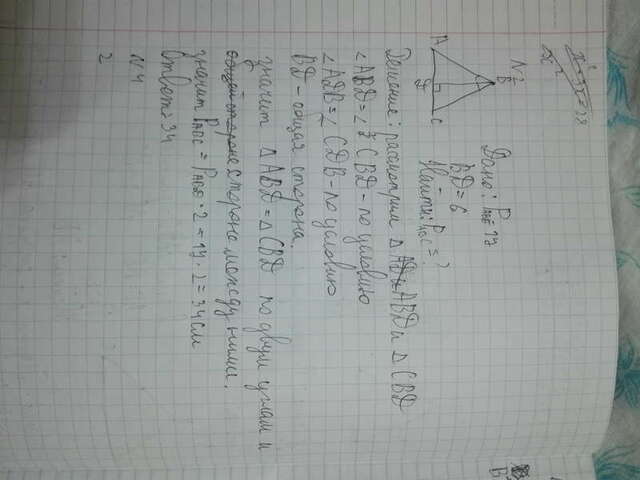 N 2
A
B
D
C
Дано: P = 17
BD = 6
Найти: P = ?
Решение: рассмотрим Δ ABD и Δ CBD
∠ABD = ∠CBD - по условию
∠ADB = ∠CDB - по условию
BD - общая сторона
значит Δ ABD = Δ CBD по двум углам и
стороне между ними.
значит PABC = PABD · 2 = 17 · 2 = 34 см
Ответ: 34
N 4
2